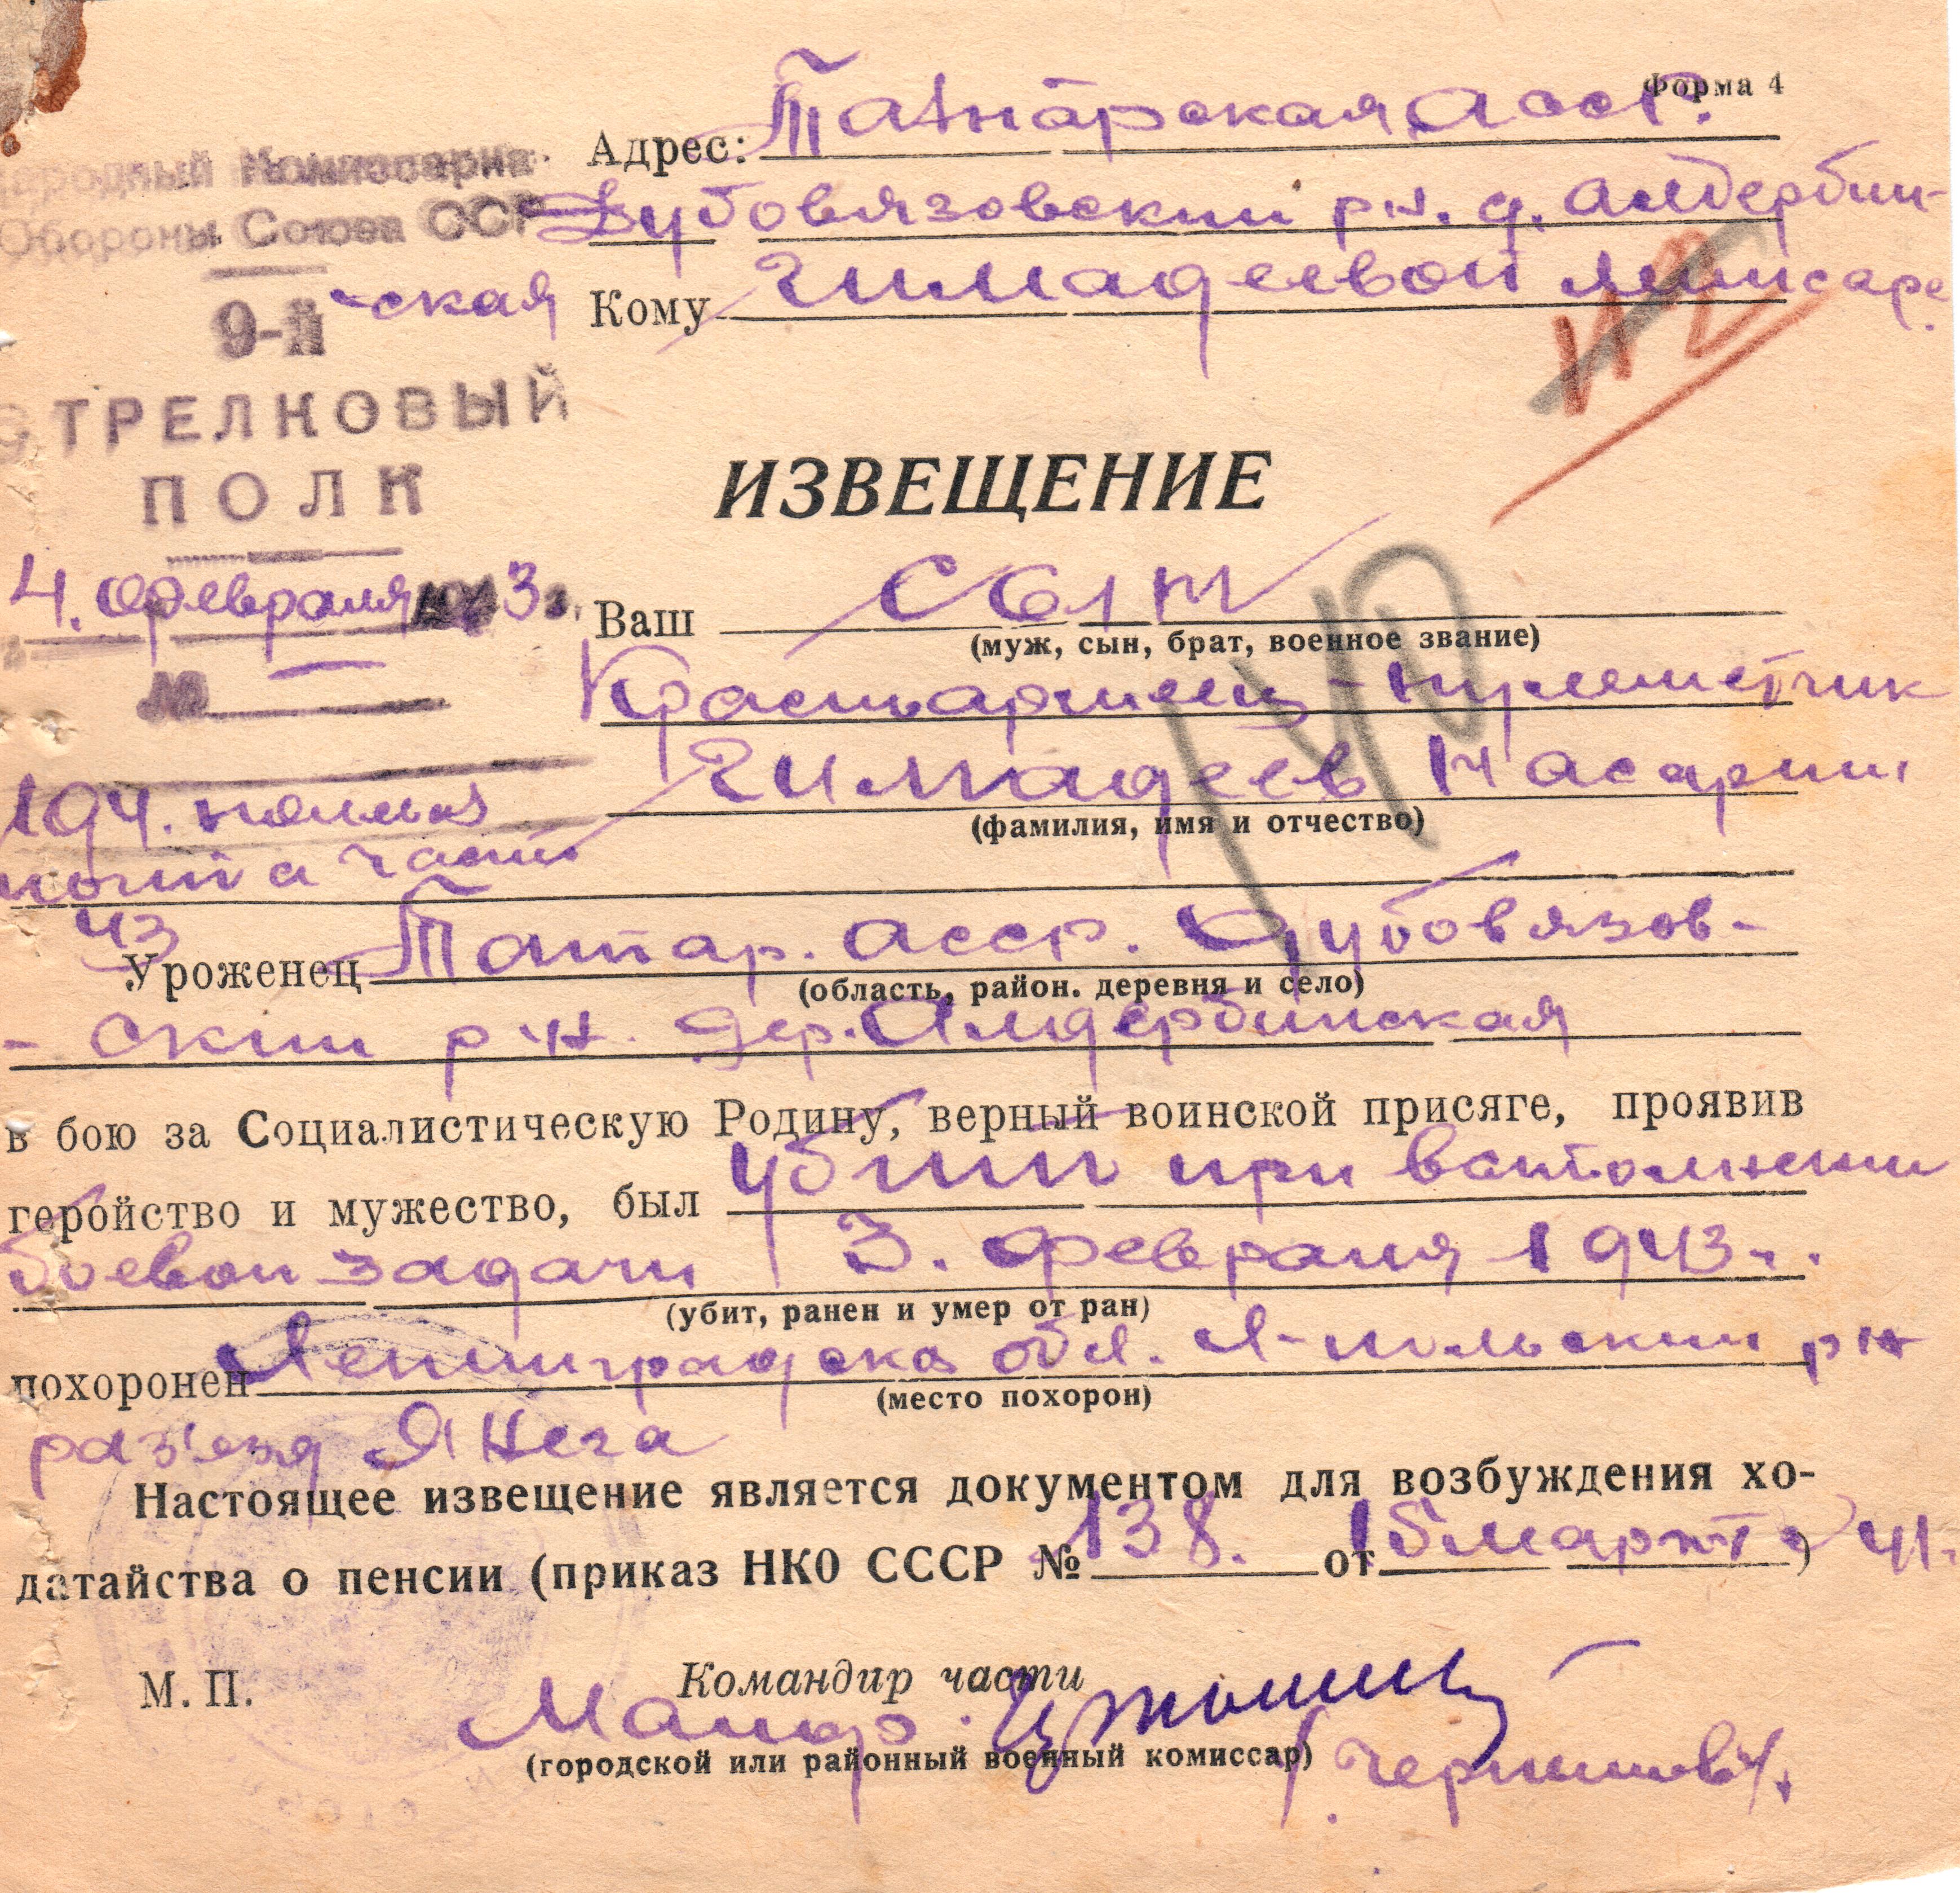 Форма 4
Народный Комиссариа
Обороны Союза ССР
9-й
СТРЕЛКОВЫЙ
ПОЛК
4. февраля 1943 г.
№ —
194. полевая
почта часть
43
Адрес: Татарская АССР.
Дубовязовский р-н. д. Алдербин-
-ская
Кому Гимадеевой
ИЗВЕЩЕНИЕ
Ваш сын
(муж, сын, брат, военное звание)
Красноармеец-пулеметчик
Гимадеев Насарии
(фамилия, имя и отчество)
Уроженец Татар. АССР. Дубовязов-
(область, район. деревня и село)
- ский р-н. дер. Алдербинская
в бою за Социалистическую Родину, верный воинской присяге, проявив
геройство и мужество, был убит при выполнении
боевой задачи 3. февраля 1943 г.
(убит, ранен и умер от ран)
похоронен Ленинградска обл. рн
(место похорон)
раз'езд Янега
Настоящее извещение является документом для возбуждения хо-
датайства о пенсии (приказ НКО СССР № 138. от 15 марта 41.)
М. П.
Командир части
Майор
(городской или районный военный комиссар)
/Чернышов/.